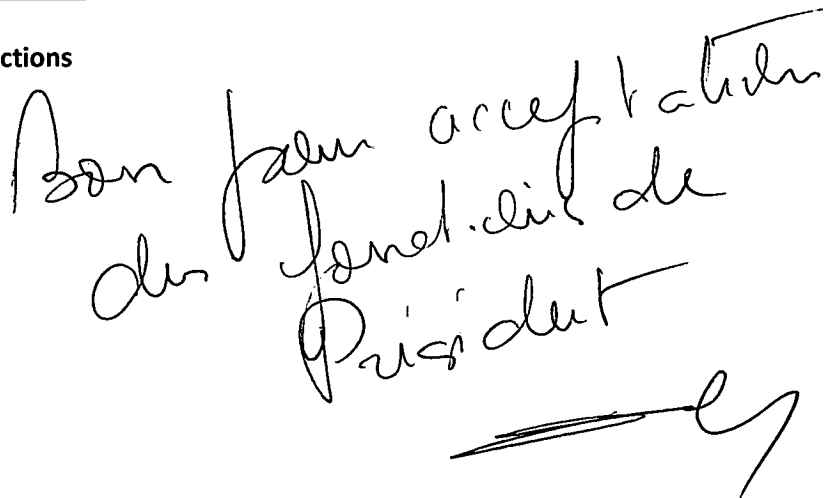 ctions
Bon pour acceptation
des fonctions de
Président